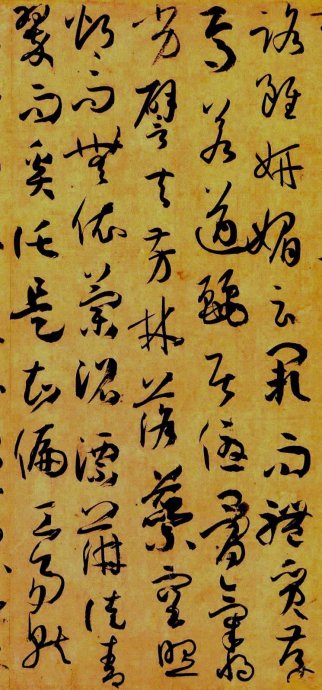 路雖妍媚云闕而體質存
焉若遒麗居優骨氣將
劣譬夫芳林落蘂空照
灼而無依蘭沼漂蓱徒青
翠而奚託是知偏工易就